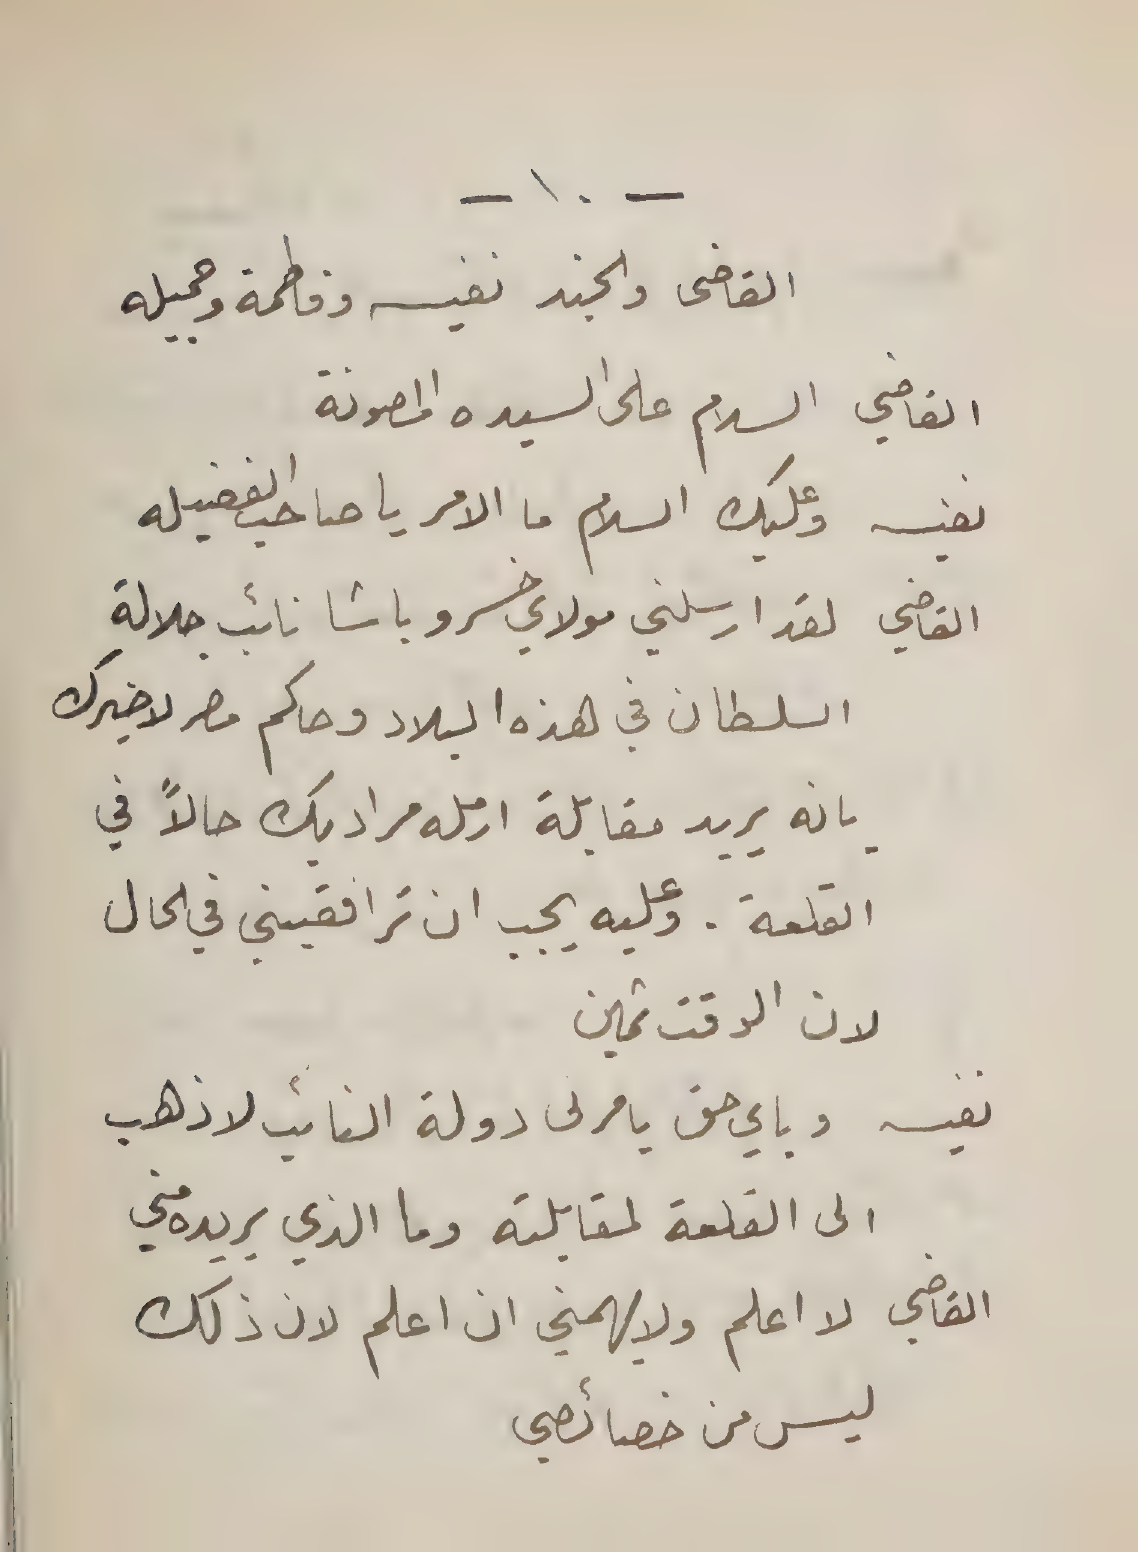 — ١٠ —
القاضى والجند نفيسه وفاطمة وجميله
القاضي السلام على السيده المصونة
نفيسه وعليك السلام ما الامر يا صاحب الفضيله
القاضي لقد ارسلني مولاي خسرو باشا نائب جلالة
السلطان في هذه البلاد وحاكم مصر لاخبرك
بانه يريد مقابلة ارمله مراد بك حالاً في
القلعة . وعليه يجب ان ترافقيني في الحال
لان الوقت ثمين
نفيسه وباي حق يامرنى دولة النائب لاذهب
الى القلعة لمقابلته وما الذي يريده مني
القاضي لا اعلم ولا يهمني ان اعلم لان ذلك
ليس من خصائصي